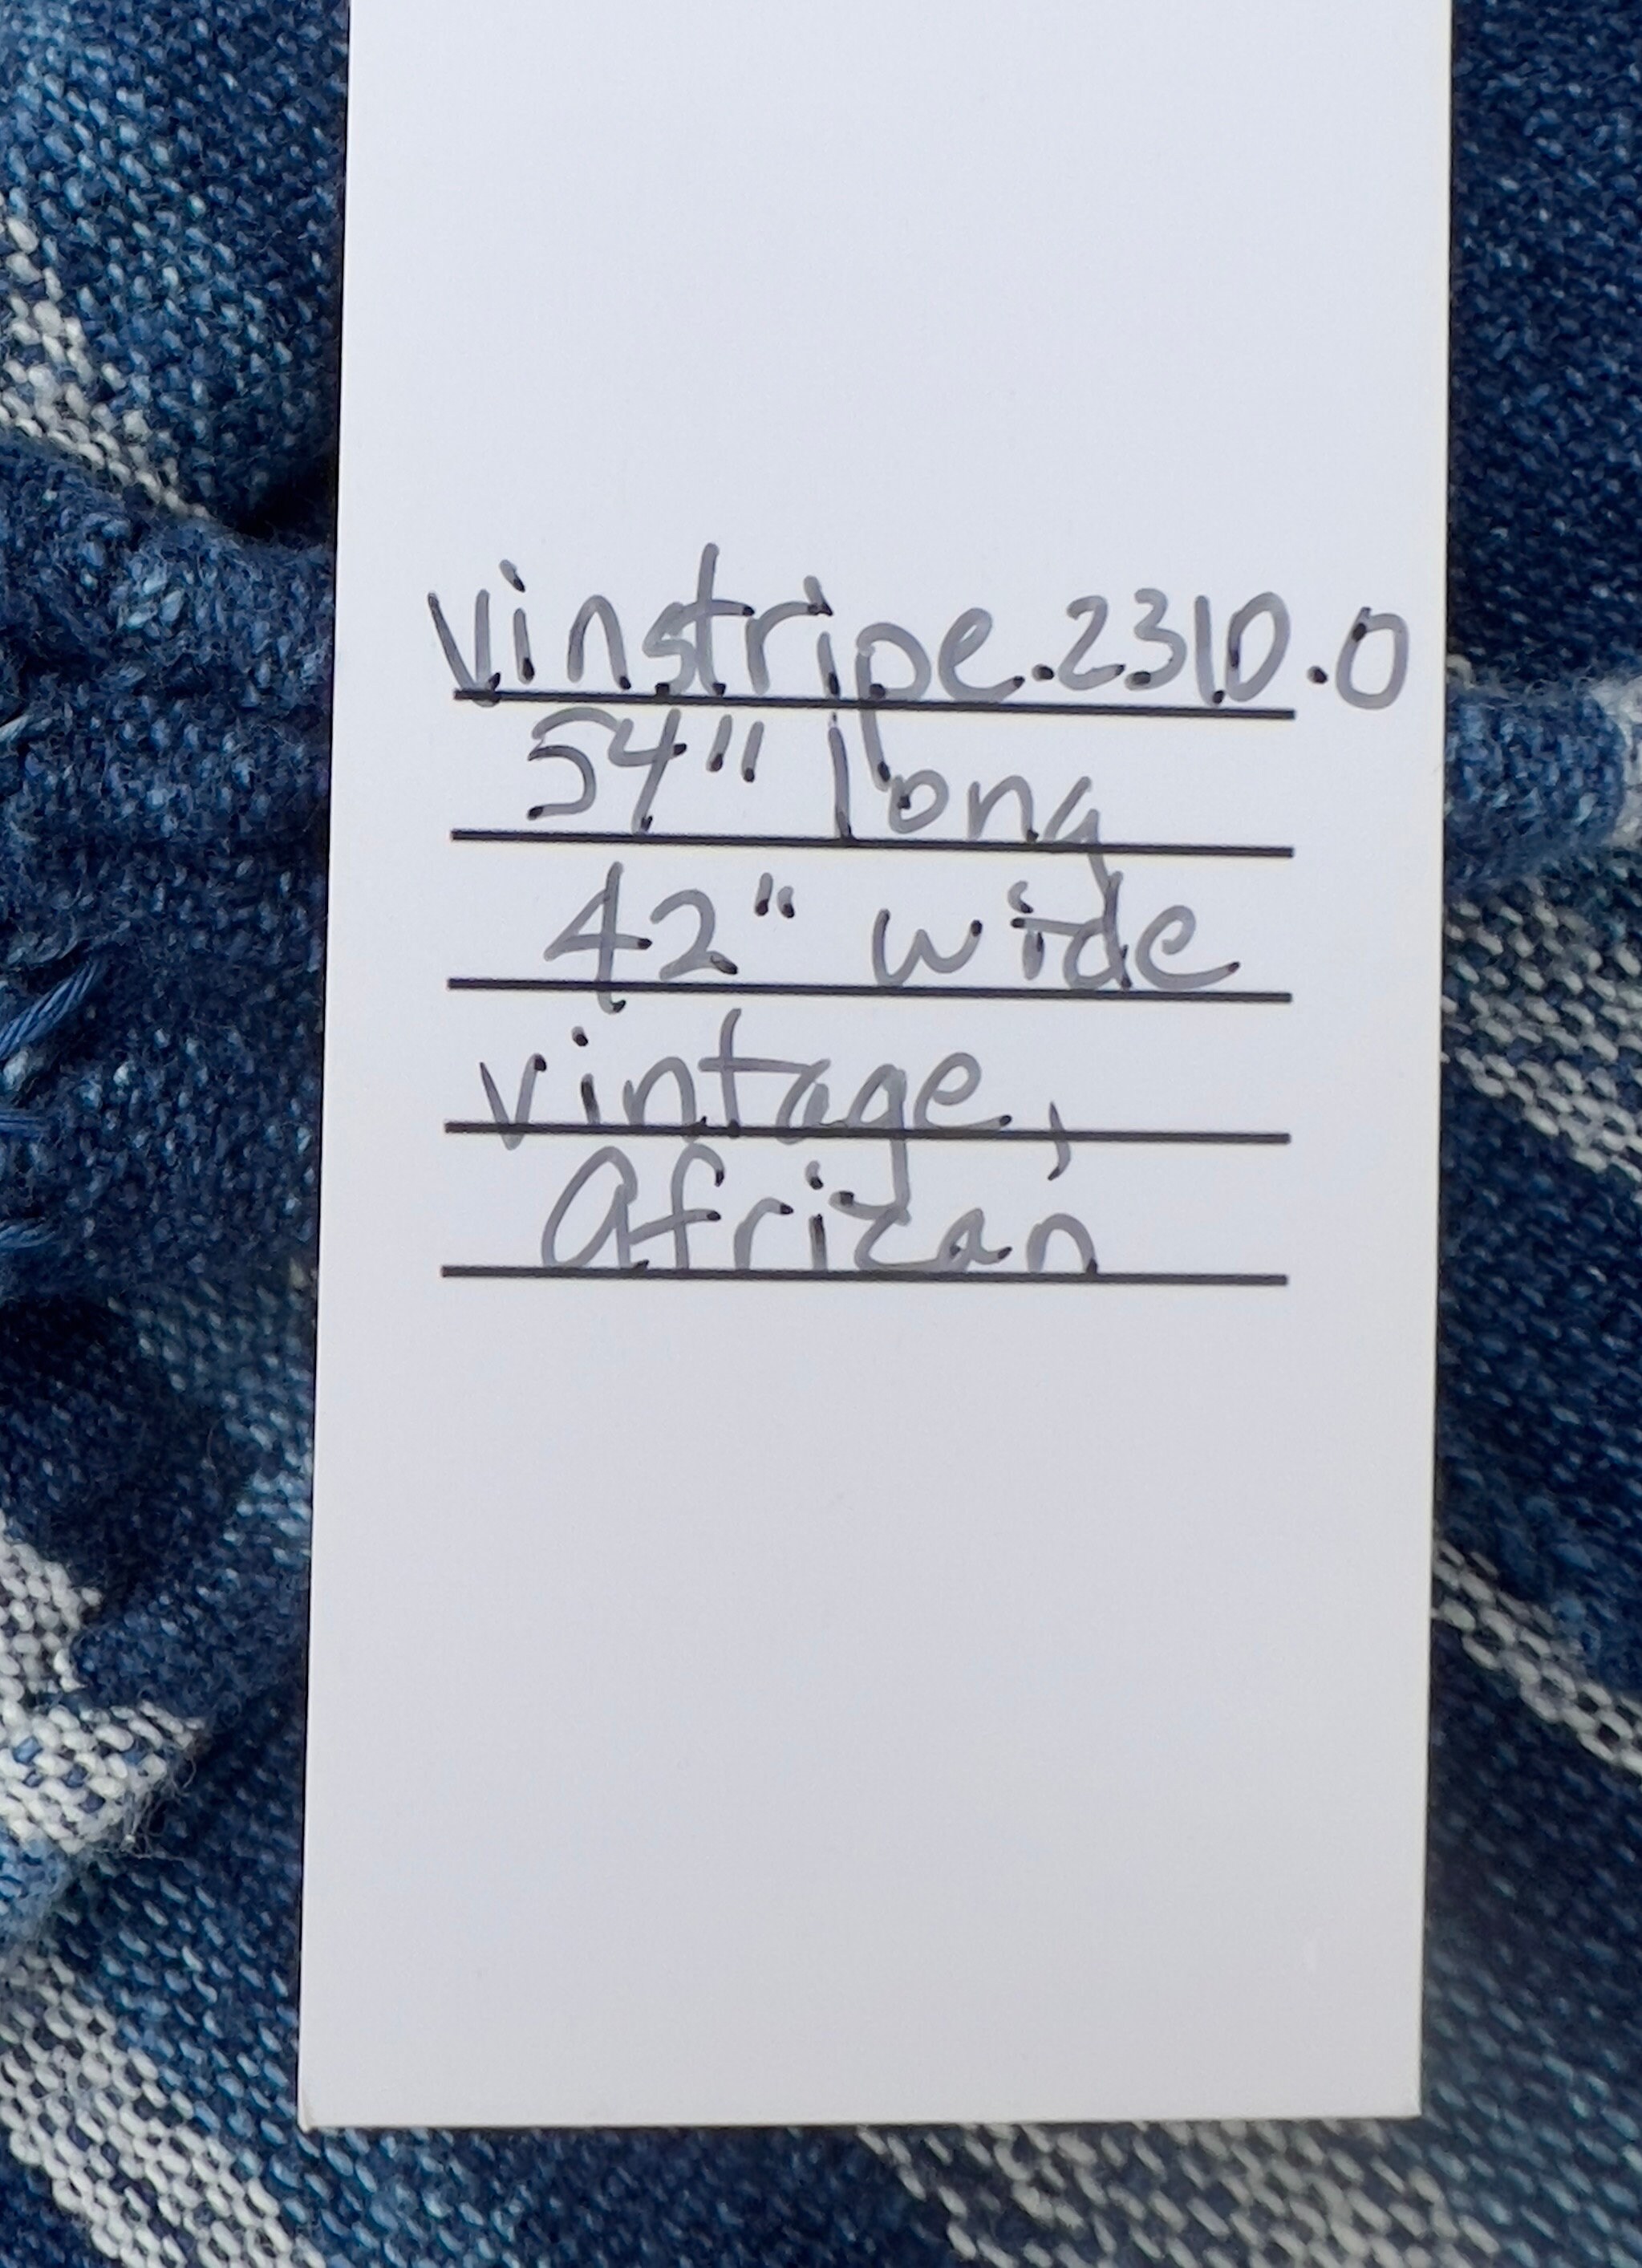 vinstripe.2310.0
54" long
42" wide
vintage,
African